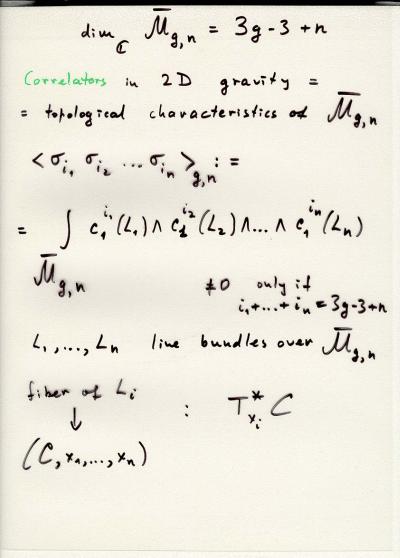 dim_ℂ M̄_{g,n} = 3g-3+n
Correlators in 2D gravity =
= topological characteristics of M̄_{g,n}
<σ_{i_1} σ_{i_2} ... σ_{i_n}>_{g,n} : =
= ∫_{M̄_{g,n}} c_1^{i_1}(L_1) ∧ c_1^{i_2}(L_2) ∧ ... ∧ c_1^{i_n}(L_n)
≠0 only if
i_1+...+i_n = 3g-3+n
L_1, ..., L_n line bundles over M̄_{g,n}
fiber of L_i
↓ : T*_{x_i} C
(C, x_1, ..., x_n)